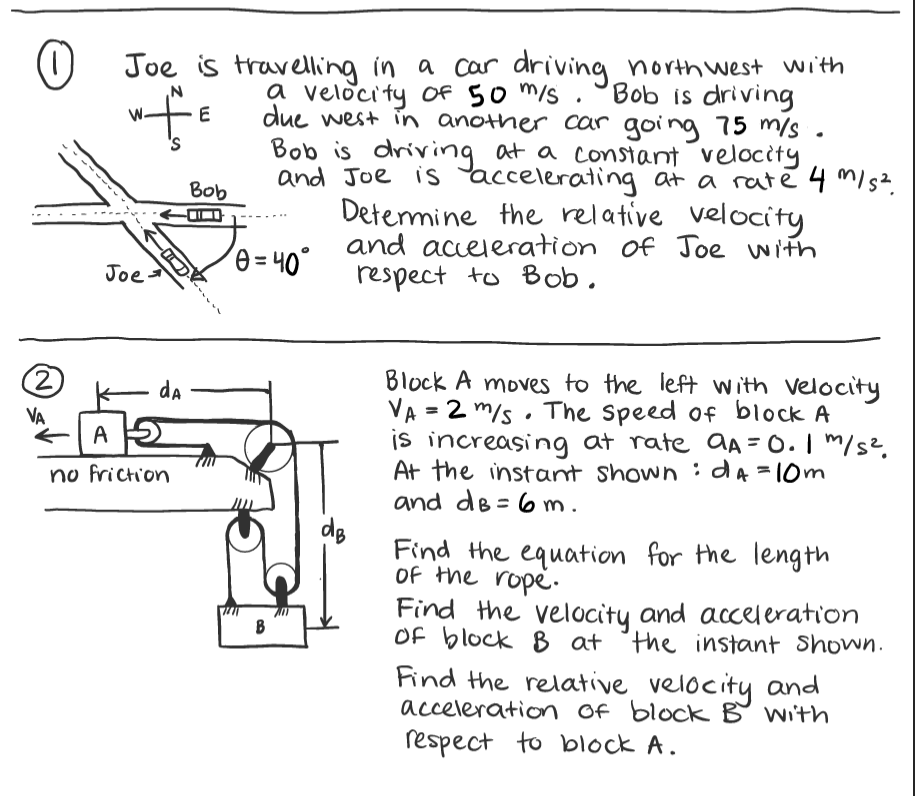 ① Joe is travelling in a car driving northwest with
a velocity of 50 m/s . Bob is driving
due west in another car going 75 m/s .
Bob is driving at a constant velocity
and Joe is accelerating at a rate 4 m/s².
Determine the relative velocity
and acceleration of Joe with
respect to Bob.
N
W E
S
Bob
Joe
θ = 40°
②
dA
VA
A
no friction
dB
B
Block A moves to the left with velocity
VA = 2 m/s . The speed of block A
is increasing at rate aA = 0.1 m/s².
At the instant shown : dA = 10m
and dB = 6 m.
Find the equation for the length
of the rope.
Find the velocity and acceleration
of block B at the instant shown.
Find the relative velocity and
acceleration of block B with
respect to block A.